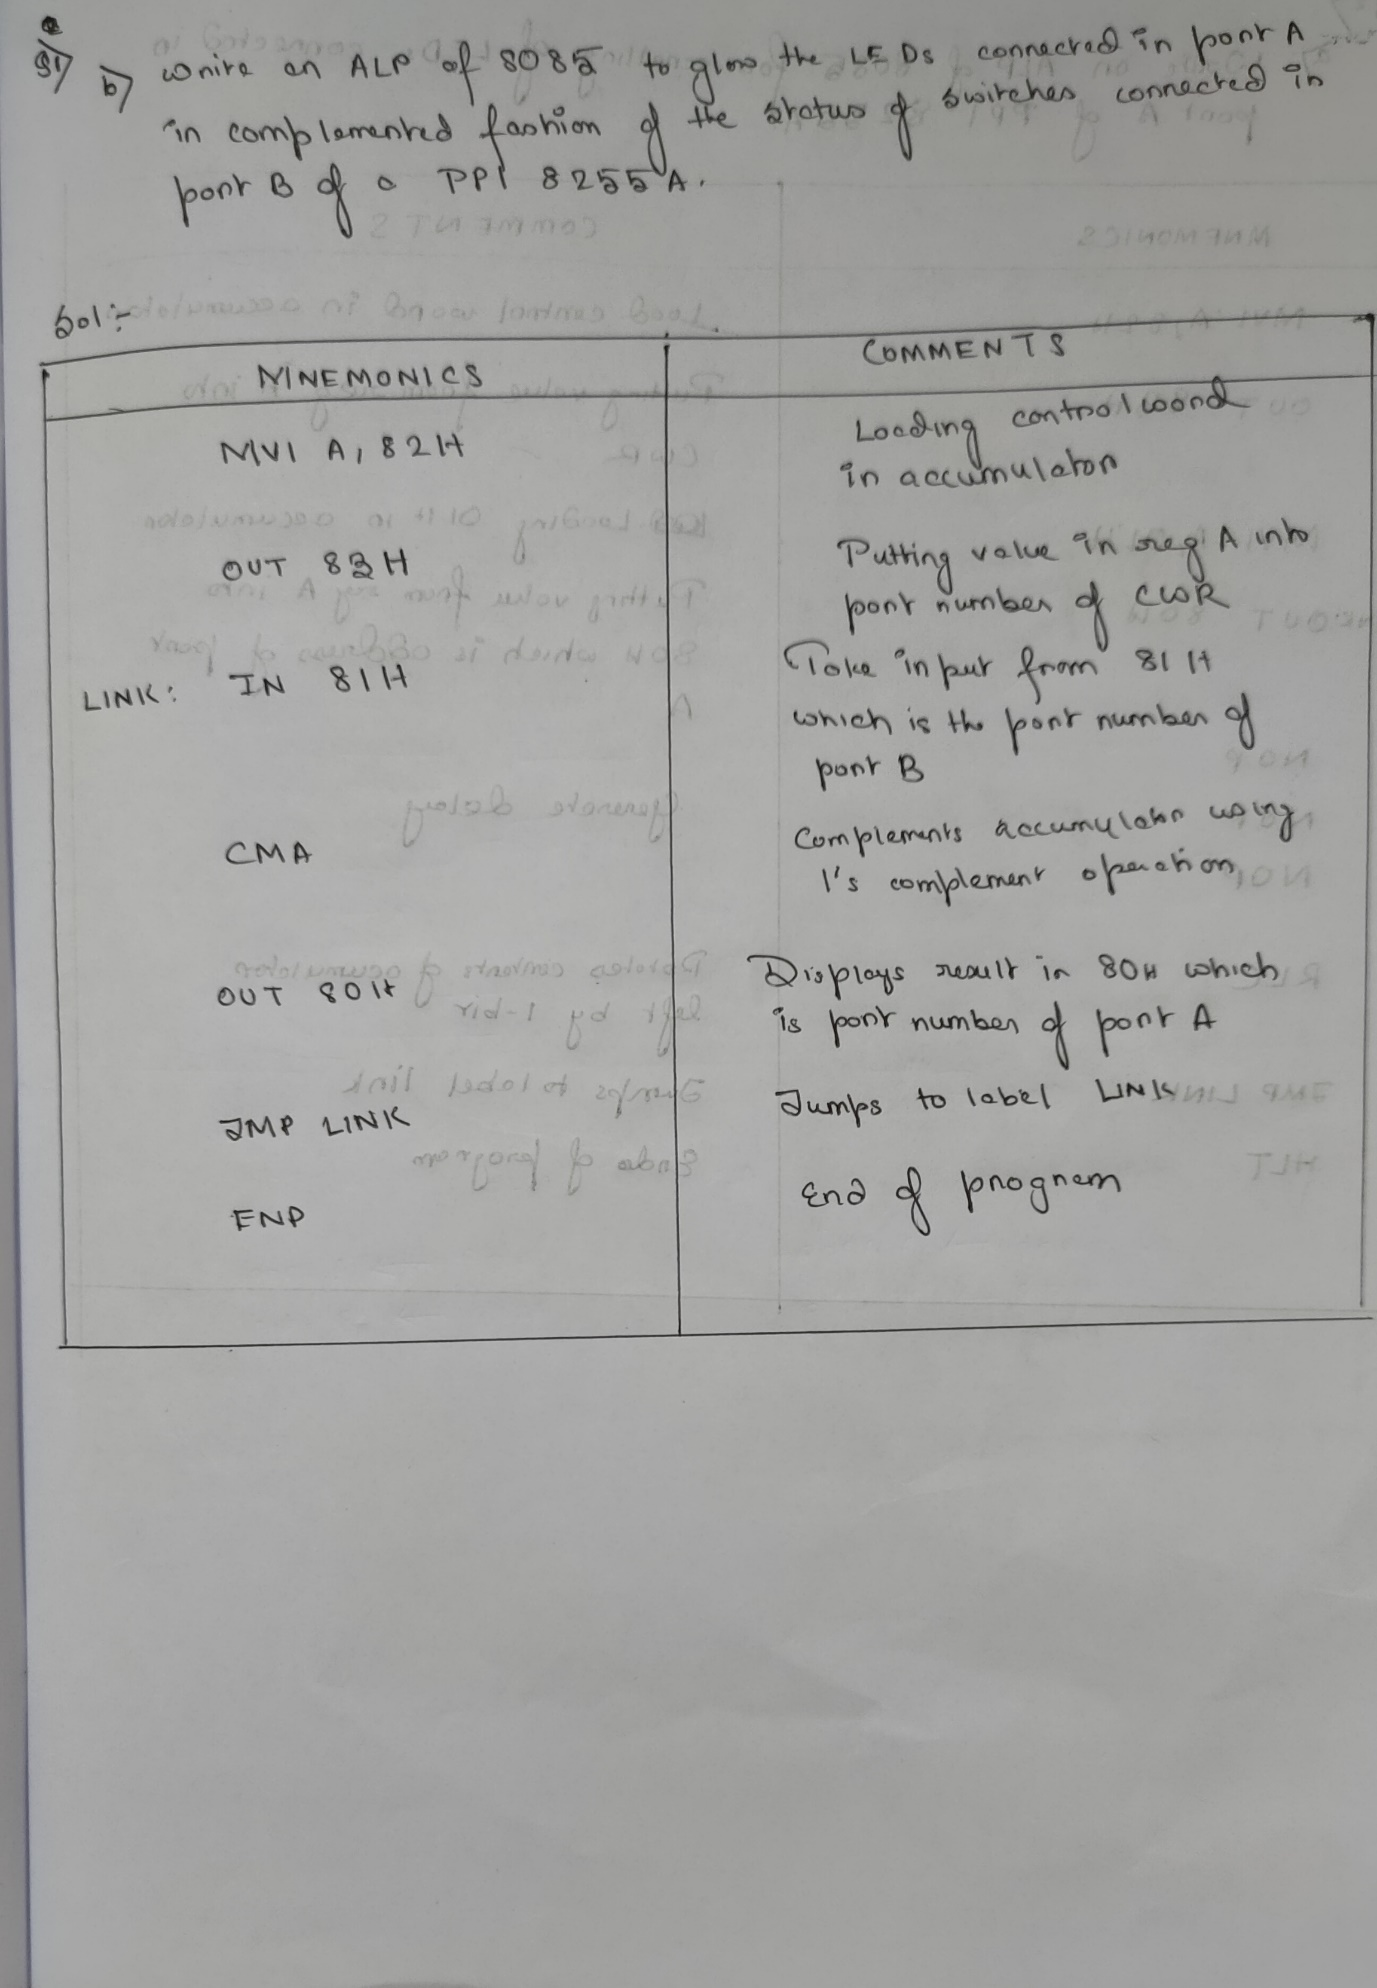 Q1) b) Write an ALP of 8085 to glow the LEDs connected in port A
in complemented fashion of the status of switches connected in
port B of a PPI 8255A.
Sol:-
MNEMONICS
COMMENTS
MVI A, 82H
Loading control word
in accumulator
OUT 83H
Putting value in reg A into
port number of CWR
LINK: IN 81H
Take input from 81H
which is the port number of
port B
CMA
Complements accumulator using
1's complement operation
OUT 80H
Displays result in 80H which
is port number of port A
JMP LINK
Jumps to label LINK
END
End of program